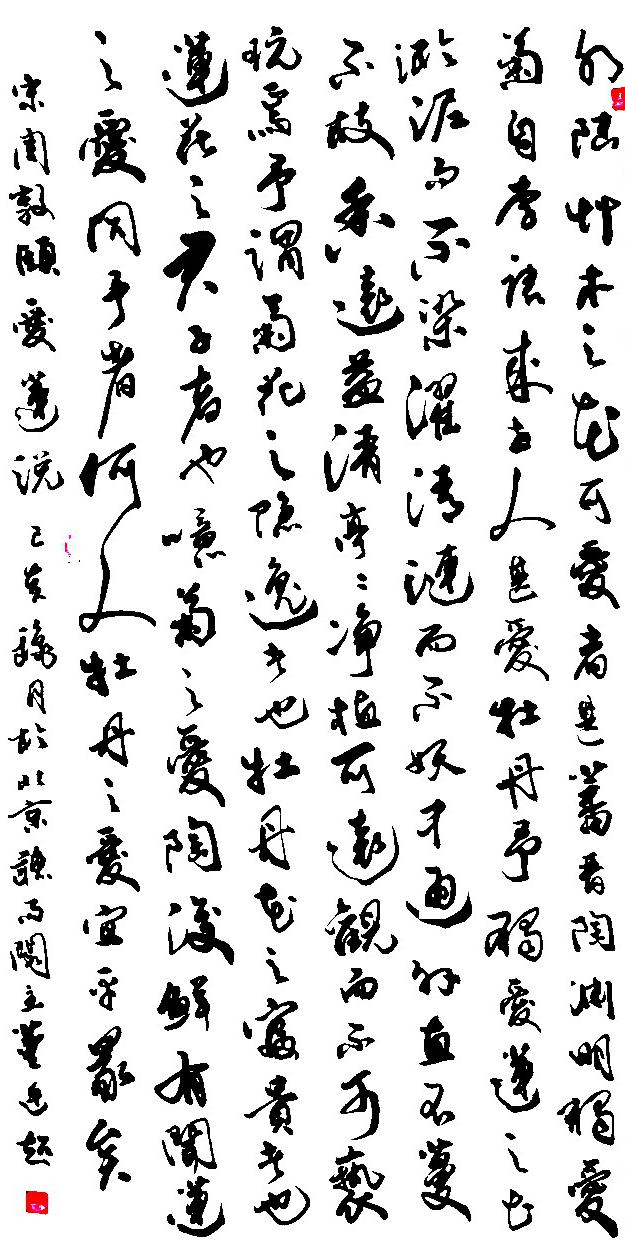 水陸艸木之花可愛者甚蕃晉陶渊明獨愛
菊自李唐來世人甚愛牡丹予獨愛蓮之出
淤泥而不染濯清漣而不妖中通外直不蔓
不枝香遠益清亭〻淨植可遠觀而不可褻
玩焉予謂菊花之隐逸者也牡丹花之富貴者也
蓮花之君子者也噫菊之愛陶後鮮有聞蓮
之愛同予者何人牡丹之愛宜乎眾矣
宋周敦頤愛蓮说 己亥穐月於北京聽雨閣主